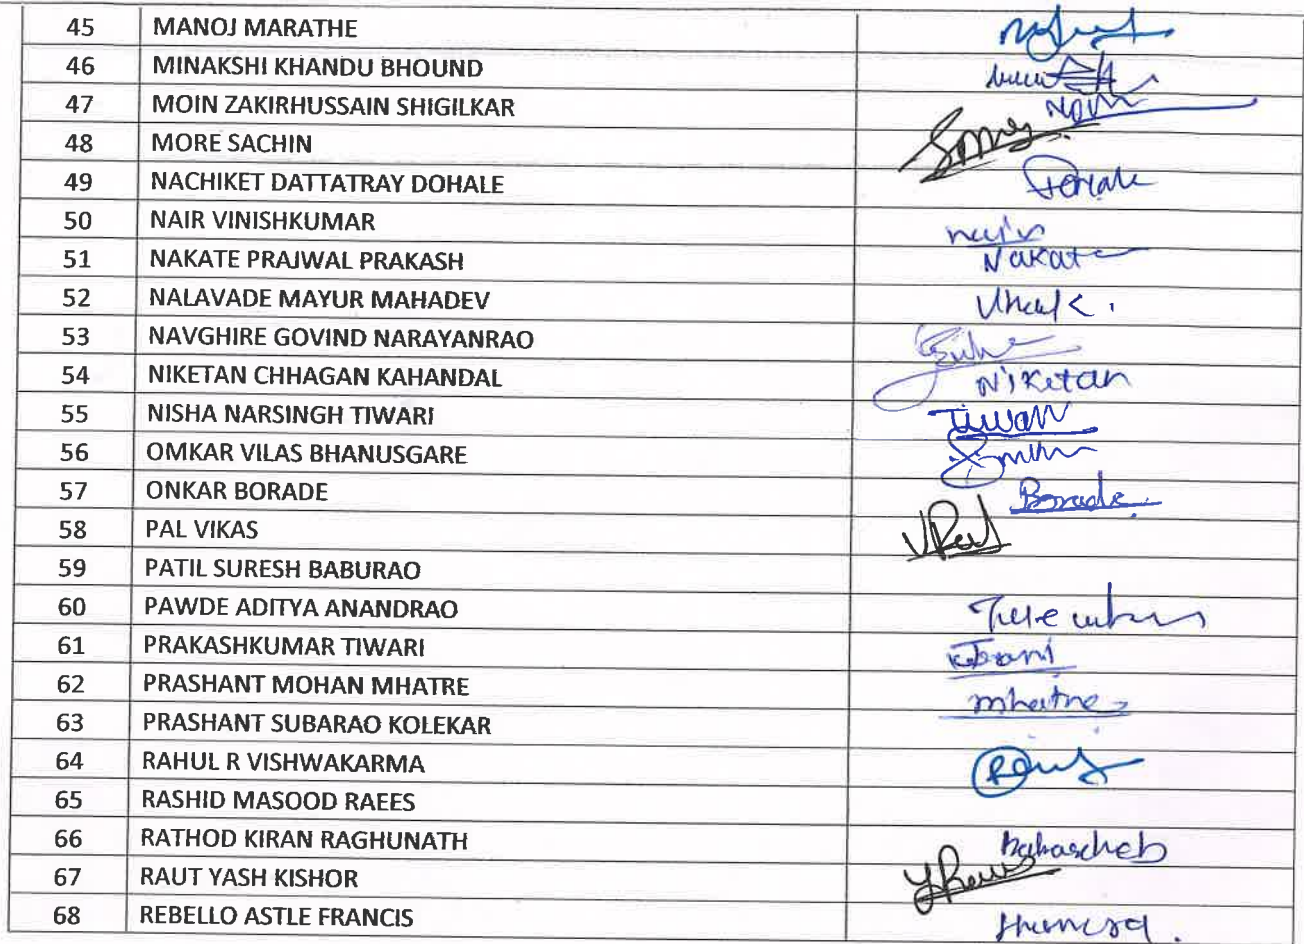 45 MANOJ MARATHE
46 MINAKSHI KHANDU BHOUND
47 MOIN ZAKIRHUSSAIN SHIGILKAR
48 MORE SACHIN
49 NACHIKET DATTATRAY DOHALE
50 NAIR VINISHKUMAR
51 NAKATE PRAJWAL PRAKASH Nakate
52 NALAVADE MAYUR MAHADEV
53 NAVGHIRE GOVIND NARAYANRAO
54 NIKETAN CHHAGAN KAHANDAL Niketan
55 NISHA NARSINGH TIWARI Tiwari
56 OMKAR VILAS BHANUSGARE
57 ONKAR BORADE Borade
58 PAL VIKAS
59 PATIL SURESH BABURAO
60 PAWDE ADITYA ANANDRAO
61 PRAKASHKUMAR TIWARI
62 PRASHANT MOHAN MHATRE mhatre
63 PRASHANT SUBARAO KOLEKAR
64 RAHUL R VISHWAKARMA
65 RASHID MASOOD RAEES
66 RATHOD KIRAN RAGHUNATH
67 RAUT YASH KISHOR
68 REBELLO ASTLE FRANCIS